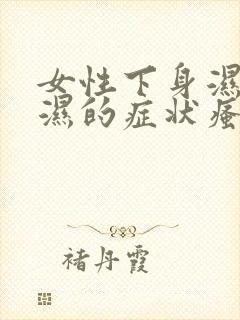 女性下身濕
濕的症状瘙
褚丹霞